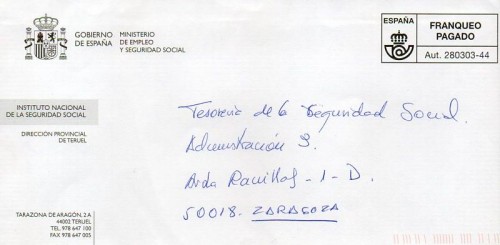 GOBIERNO
DE ESPAÑA
MINISTERIO
DE EMPLEO
Y SEGURIDAD SOCIAL
ESPAÑA
FRANQUEO
PAGADO
Aut. 280303-44
INSTITUTO NACIONAL
DE LA SEGURIDAD SOCIAL
DIRECCIÓN PROVINCIAL
DE TERUEL
Tesorería de la Seguridad Social.
Administración 3.
Avda Ranillas - 1 - D.
50018 - ZARAGOZA
TARAZONA DE ARAGÓN, 2 A
44002 TERUEL
TEL. 978 647 100
FAX 978 647 005